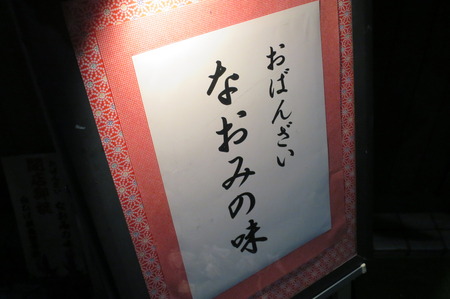 おばんざい
なおみの味